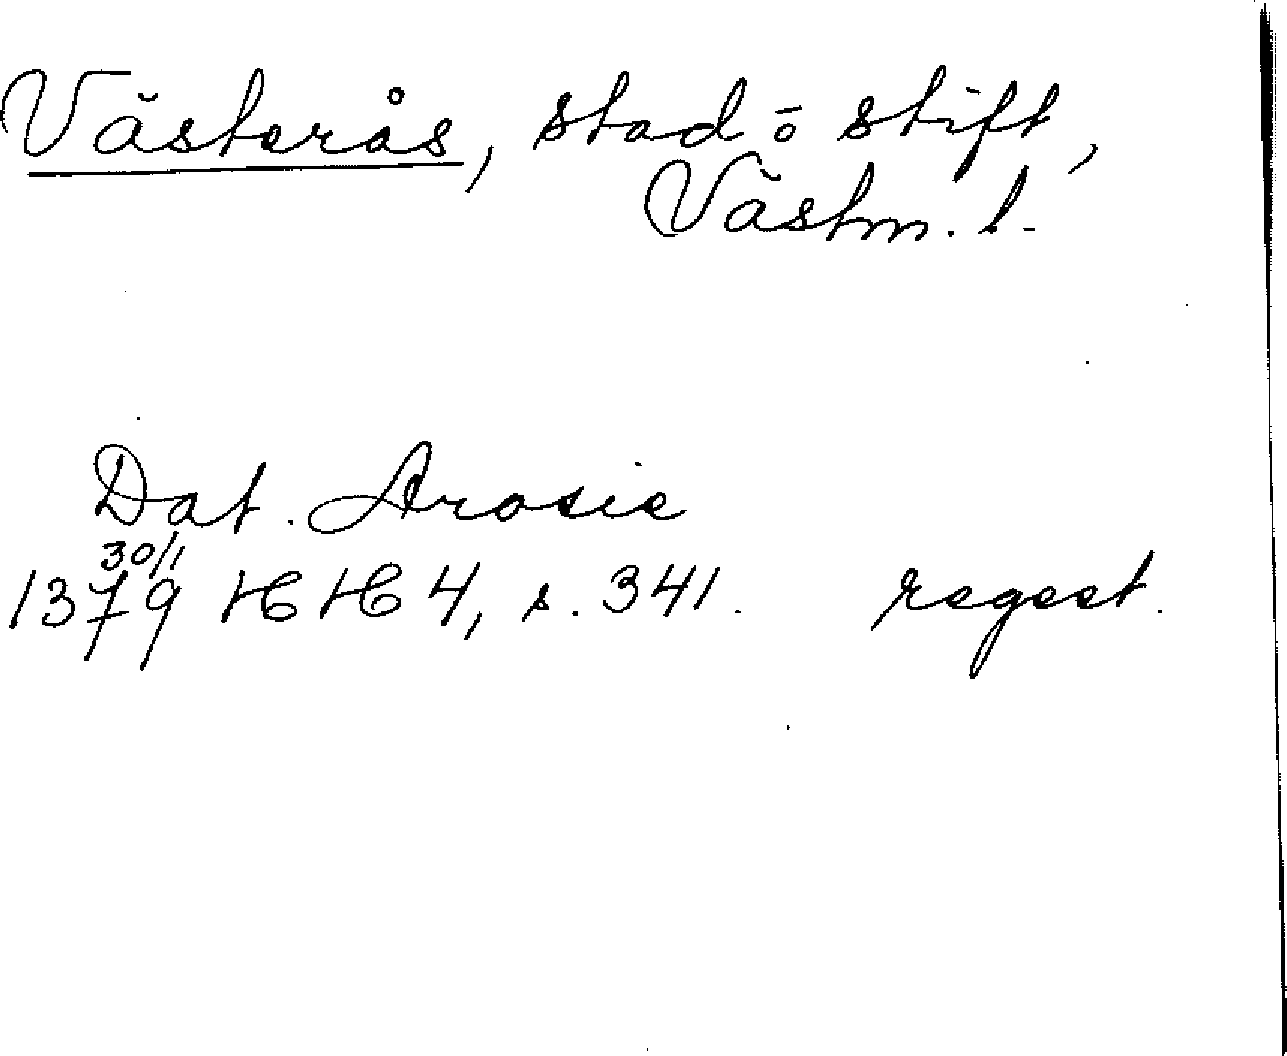 Västerås, stad o stift,
Västm. l.
Dat. Arosie
30/1
1379 HH 4, s. 341. regest.